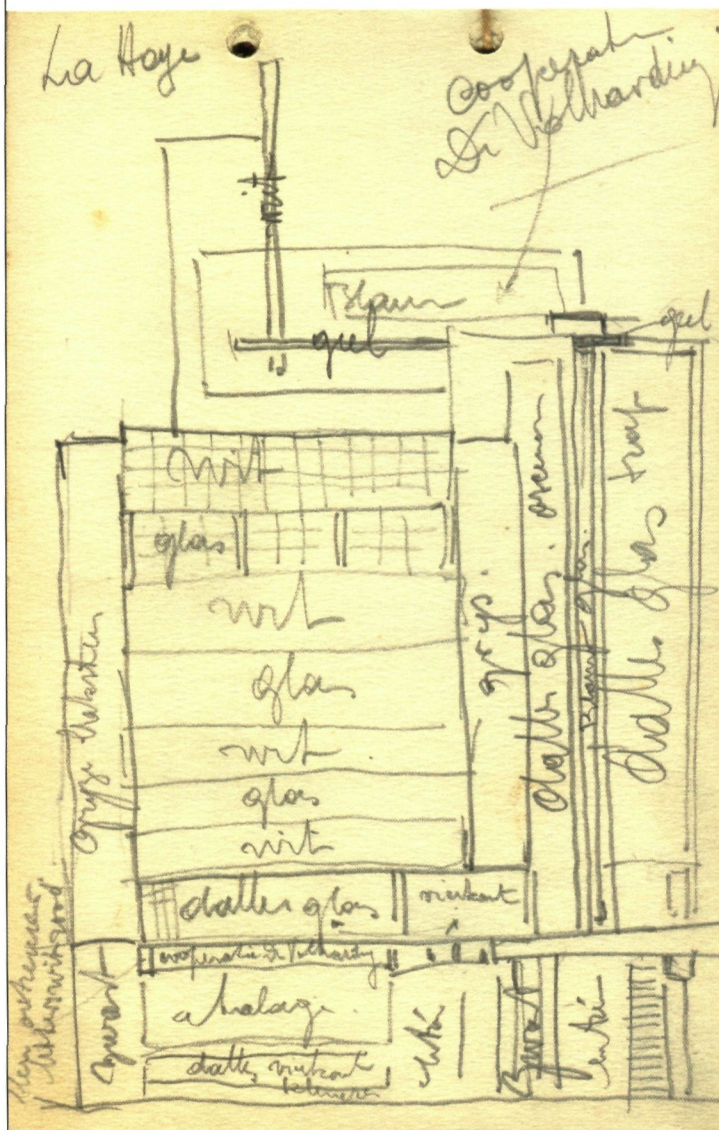 La Haye
cooperatie
De Volharding
wit
Blauw
geel
geel
wit
glas
wit
glas
wit
glas
wit
grijs.
dalles glas.
Blauw glas.
dalles glas trap
dalles glas
vierkant
cooperatie De Volharding
etalage.
dalles vierkant
zwart
entré
Zwart
entré